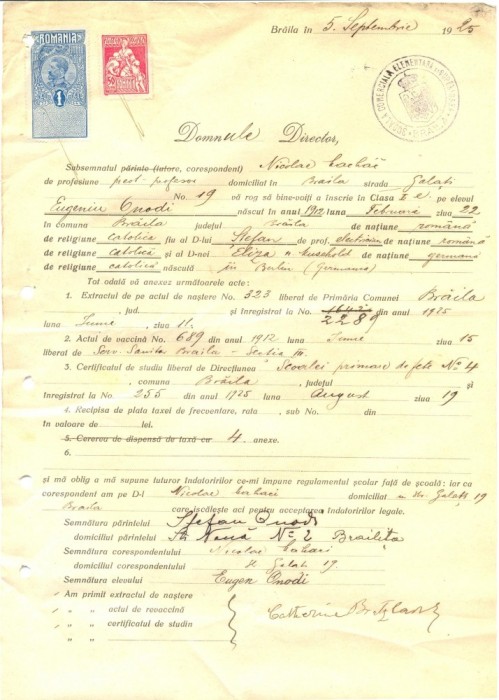 Brăila în 5. Septembrie 1925
ROMANIA
1
Domnule Director,
Subsemnatul părinte (tutore, corespondent) Nicolae
de profesiune preot-profesor domiciliat în Braila strada Galați
No. 19 vă rog să bine-voiți a înscrie în Clasa I e. pe eleoul
Eugeniu Onodi născut în anul 1912 luna Februarie ziua 22
în comuna Brăila județul Brăila de națiune română
de religiune catolica fiu al D-lui Ștefan de prof. electrician de națiune română
de religiune catolică și al D-nei Eliza n. de națiune germană
de religiune catolică născută în Berlin (Germania)
Tot odaiă să anexez următoarele acte:
1. Extractul de pe actul de naștere No. 323 liberat de Primaria Comunei Brăila
, jud. și înregistrat la No. 2289 din anul 1925
luna Iunie, ziua 11.
2. Actul de vaccină No. 689 din anul 1912 luna Iunie ziua 15
liberat de Serv. Sanitar Braila – Sectia III.
3. Certificatul de studiu liberat de Direcțiunea Scoalei primare de fete No 4
, comuna Brăila, județul și
înregistrat la No. 255 din anul 1925 luna August ziua 19
4. Recipisa de plata taxei de frecoentare, rata , sub No. din
în valoare de lei.
5. Cererea de dispensă de taxă cu 4. anexe.
6.
și mă oblig a mă supune tuturor îndatoririlor ce-mi impune regulamentul școlar față de școală: iar ca
corespondent am pe D-l Nicolae domiciliat în str. Galați 19
Braila care iscălește aci pentru acceptarea îndatoririlor legale.
Semnătura părintelui Ștefan Onodi
domiciliul părintelui Str Nouă No 2 Brailița
Semnătura corespondentului Nicolae
domiciliul corespondentului Galați 19.
Semnătura eleoului Eugen Onodi
Am primit extractul de naștere
„ „ actul de reoaccină
„ „ certificatul de studin
„ „
Catherine